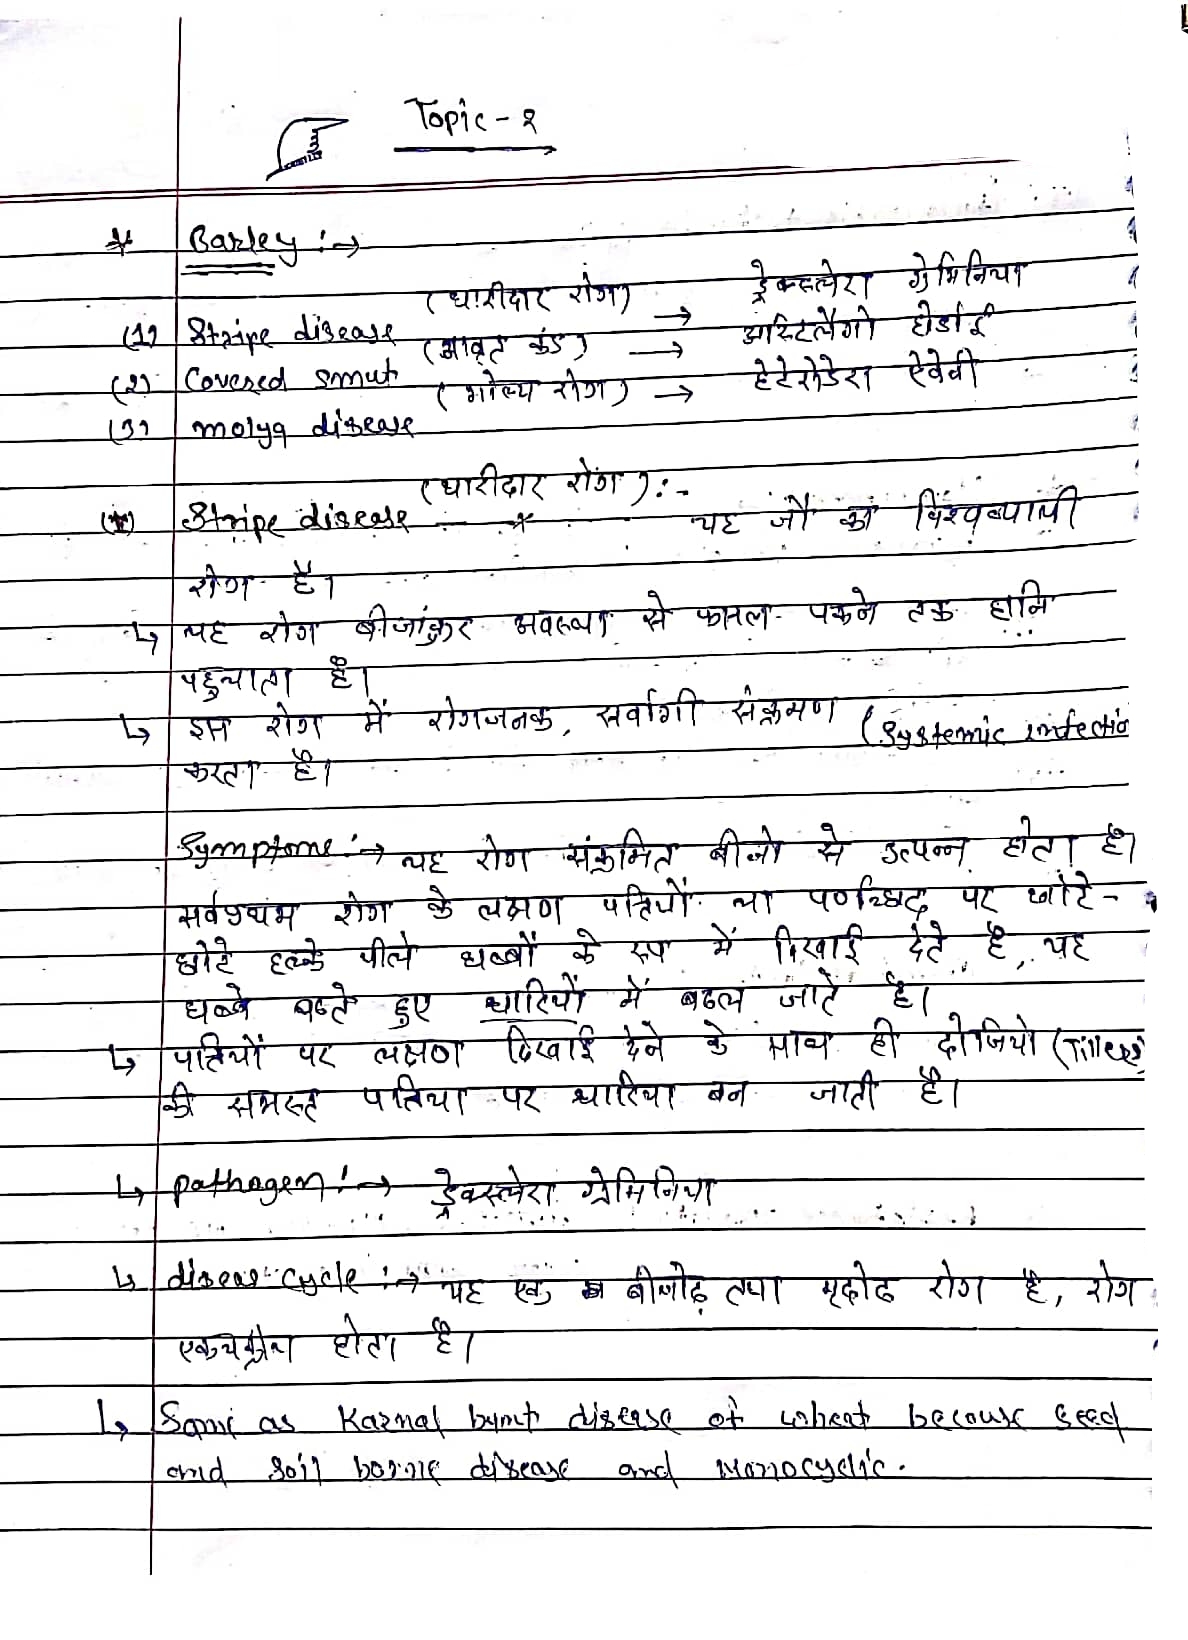 Topic - २
* Barley :→
(1) Stripe disease (धारीदार रोग) → ड्रेक्स्लेरा ग्रेमिनिया
(2) Covered smut (आवृत कंड) → अस्टिलैगो होर्डाई
(3) molya disease (मोल्या रोग) → हेटेरोडेरा ऐवेनी
(1) Stripe disease (धारीदार रोग) :- यह जौ का विश्वव्यापी
रोग है।
↳ यह रोग बीजांकुर अवस्था से फसल पकने तक हानि
पहुचाता है।
↳ इस रोग में रोगजनक, सर्वागी संक्रमण (Systemic infectio
करता है।
Symptoms :→ यह रोग संक्रमित बीजो से उत्पन्न होता है।
सर्वप्रथम रोग के लक्षण पत्तियों या पर्णच्छिद पर छोटे-
छोटे हल्के पीले धब्बों के रूप में दिखाई देते है, यह
धब्बे बढते हुए धारियों में बदल जाते है।
↳ पत्तियों पर लक्षण दिखाई देने के साथ ही दोजियो (Tillers)
की समस्त पत्तिया पर धारिया बन जाती है।
↳ pathogen :→ ड्रेक्स्लेरा ग्रेमिनिया
↳ diseas cycle :→ यह एक बीजोढ़ तथा मृदोढ रोग है, रोग
एकचक्रीय होता है।
↳ Same as Karnal bunt disease of wheat because seed
and soil borne disease and Monocyclic.